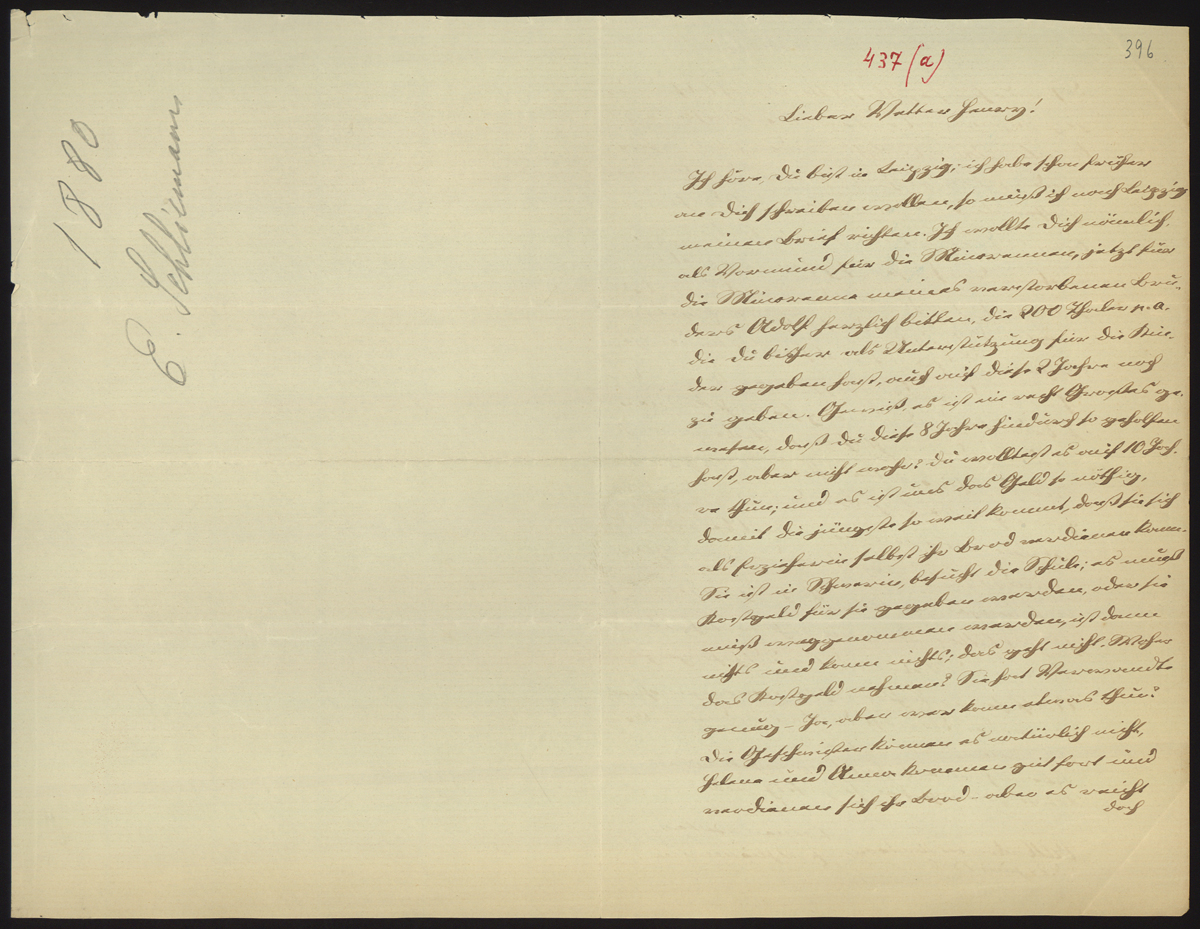 1880
E. Schliemann
437 (a)
396
Lieber Vetter Henry!
Ich höre, Du bist in Leipzig; ich habe schon früher
an Dich schreiben wollen, so muß ich nach Leipzig
meinen Brief richten. Ich wollte Dich nämlich,
als Vormund für die Minorennen, jetzt für
die Minorenne meines verstorbenen Bru-
ders Adolf herzlich bitten, die 200 Thaler p. a.
die Du bisher als Unterstützung für die Kin-
der gegeben hast, auch auf diese 2 Jahre noch
zu geben. Gewiß, es ist ein recht Großes ge-
wesen, daß Du diese 8 Jahre hindurch so geholfen
hast, aber nicht wahr? Du wolltest es auf 10 Jah-
re thun; und es ist uns das Geld so nöthig,
damit die jüngste so weit kommt, daß sie sich
als Erzieherin selbst ihr Brod verdienen kann.
Sie ist in Schwerin, besucht die Schule; es muß
Kostgeld für sie gegeben werden, oder sie
muß weggenommen werden, ist dann
nichts und kann nichts; das geht nicht. Woher
das Kostgeld nehmen? Sie hat Verwandte
genug – Ja, aber wer kann etwas thun?
Die Geschwister können es natürlich nicht,
Helene und Anna kommen gut fort und
verdienen sich ihr Brod – aber es reicht
doch